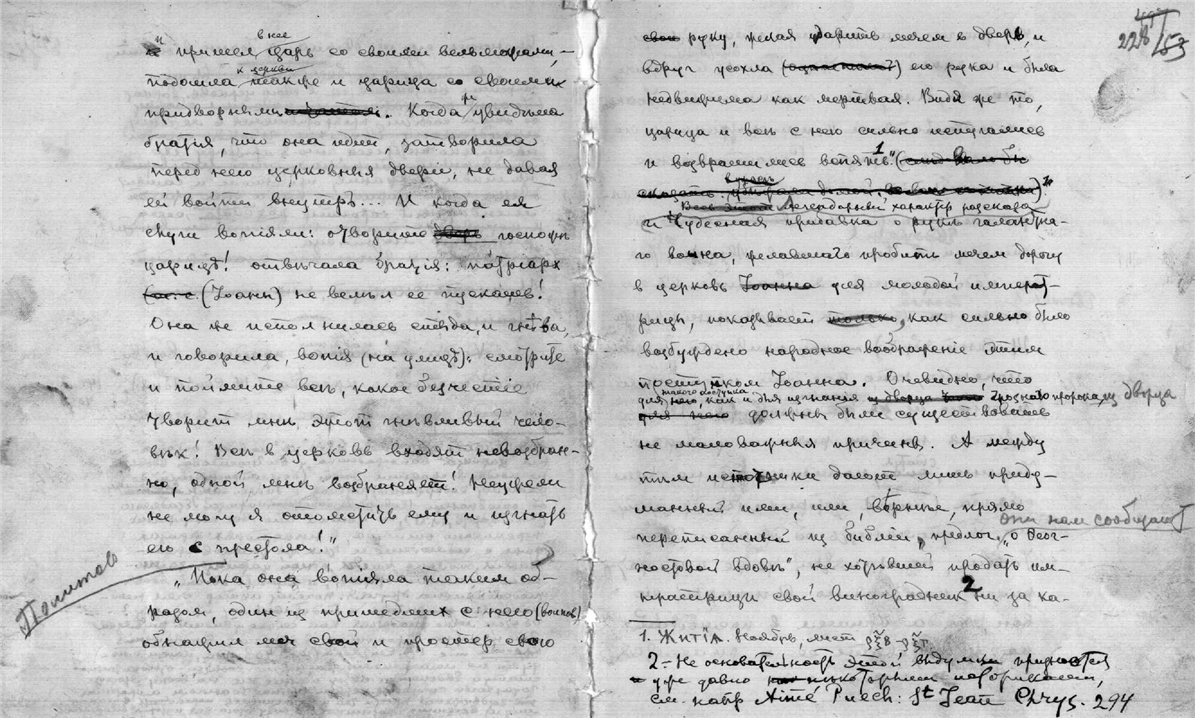 в нее
и пришел царь со своими вельможами, —
к церкви
подошла также и царица со своими
придворными. Когда же увидѣла
братія, что она идет, затворила
перед нею церковныя двери, не давая
ей войти внутрь... И когда ея
слуги вопіяли: отворите двері госпожѣ
царицѣ! отвѣчала братія: патріарх
(Іоанн) не велѣл ее пускать!
Она же исполнилась стыда, и гнѣва,
и говорила, вопія (на улицѣ): смотрите
и поймите всѣ, какое безчестіе
творит мнѣ этот гнѣвливый чело-
вѣк! Всѣ в церковь входят невозбран-
но, одной мнѣ возбраняет! Неужели
не могу я отомстить ему и изгнать
его с престола!"
Понитово
„Пока она вопіяла таким об-
разом, один из пришедших с нею (воинов)
обнажил меч свой и простер свою
228/53
свою руку, желая ударить мечем в дверь, и
вдруг усохла его рука и была
недвижима как мертвая. Видя же то,
царица и всѣ с нею сильно испугались
и возвратились вопять".1
Весь этот легендарный характер разсказа
и Чудесная прибавка о рукѣ галантна-
го воина, желавшаго пробить мечем дорогу
в церковь Іоанна для молодой императ-
рицы, показывает только, как сильно было
возбуждено народное воображеніе этим
поступком Іоанна. Очевидно, что
такого поступка
для него, как и для изгнанія грознаго пророка из дворца
для него должны были существовать
не маловажныя причины. А между
тѣм источники дают лишь приду-
манный ими, или, вѣрнѣе, прямо
они нам сообщают
переписанный из библіи, предлог „о Феог-
ностовой вдовѣ", не хотѣвшей продать им-
ператрицѣ свой виноградник 2 ни за ка-
1. Житія. Ноябрь, лист
2 – Неосновательность этой выдумки признается
уже давно нѣкоторыми историками,
см. напр Aimé Puech: St Jean Chrys. 294